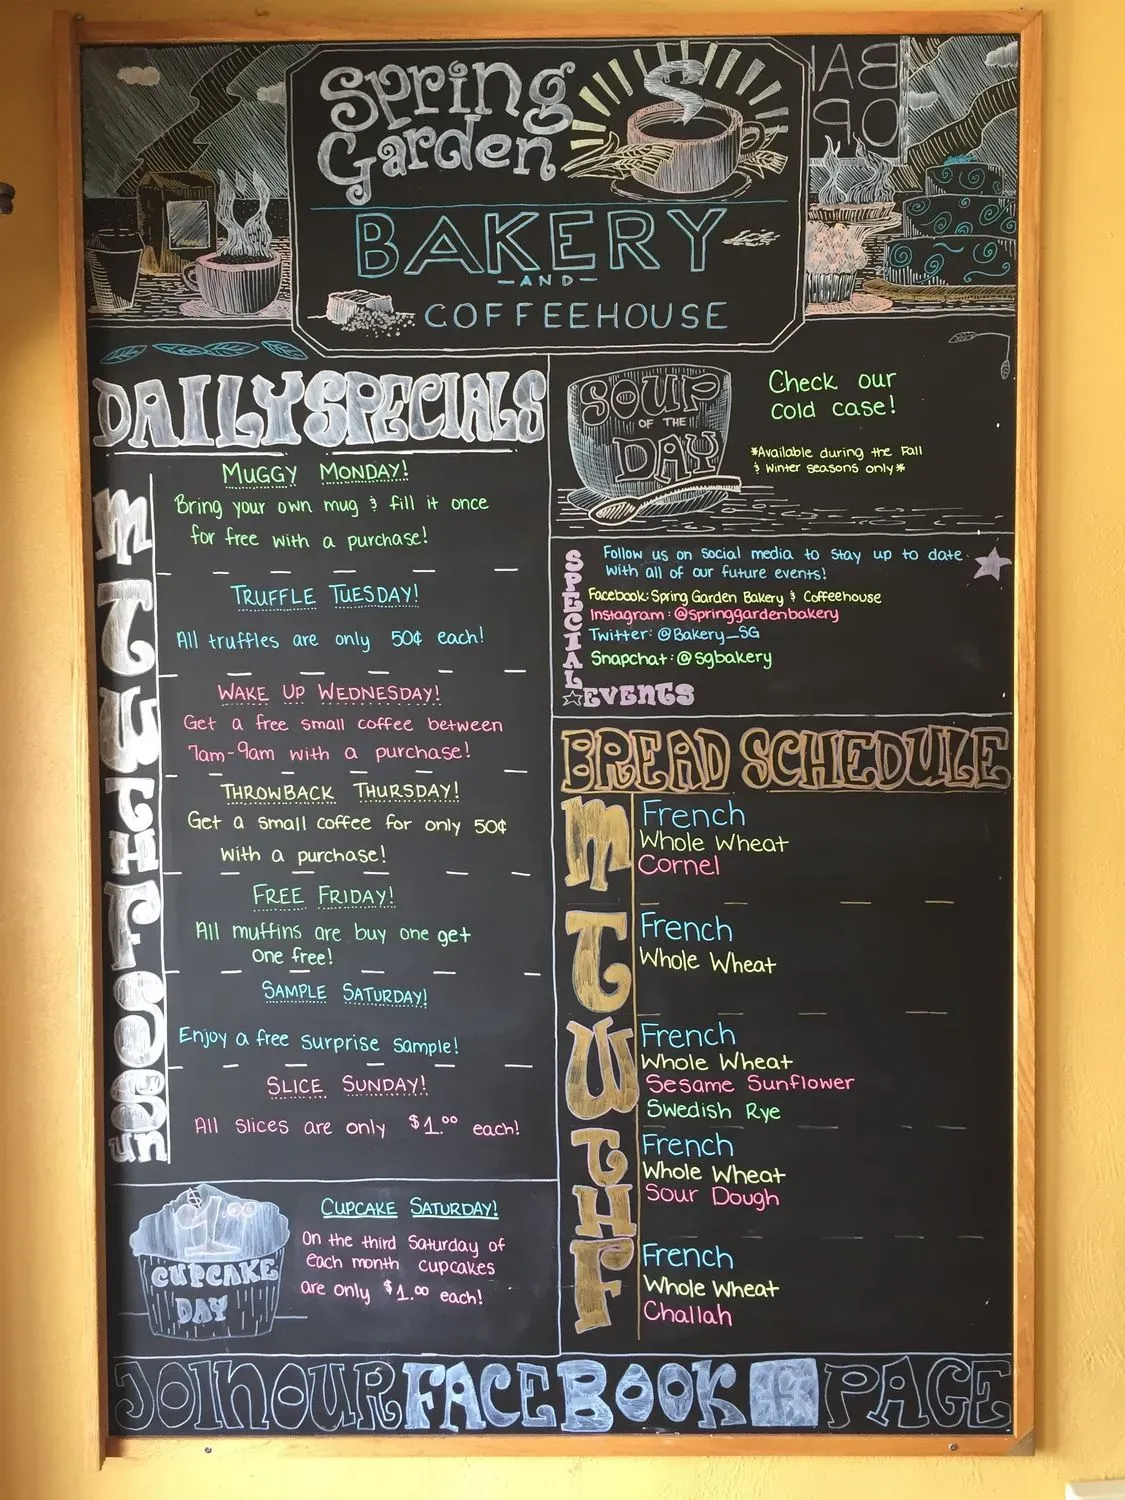 Spring
Garden
BAKERY
-AND-
COFFEEHOUSE
DAILY SPECIALS
M
T
W
TH
F
Sat
Sun
MUGGY MONDAY!
Bring your own mug & fill it once
for free with a purchase!
TRUFFLE TUESDAY!
All truffles are only 50¢ each!
WAKE UP WEDNESDAY!
Get a free small coffee between
7am-9am with a purchase!
THROWBACK THURSDAY!
Get a small coffee for only 50¢
with a purchase!
FREE FRIDAY!
All muffins are buy one get
one free!
SAMPLE SATURDAY!
Enjoy a free surprise sample!
SLICE SUNDAY!
All slices are only $1.00 each!
$1.00
CUPCAKE
DAY
CUPCAKE SATURDAY!
On the third Saturday of
each month cupcakes
are only $1.00 each!
SOUP
OF THE
DAY
Check our
cold case!
*Available during the Fall
& Winter seasons only*
SPECIAL
EVENTS
Follow us on social media to stay up to date
with all of our future events!
Facebook: Spring Garden Bakery & Coffeehouse
Instagram: @springgardenbakery
Twitter: @Bakery_SG
Snapchat: @sgbakery
BREAD SCHEDULE
M
French
Whole Wheat
Cornel
T
French
Whole Wheat
W
French
Whole Wheat
Sesame Sunflower
Swedish Rye
TH
French
Whole Wheat
Sour Dough
F
French
Whole Wheat
Challah
JOIN OUR FACEBOOK PAGE